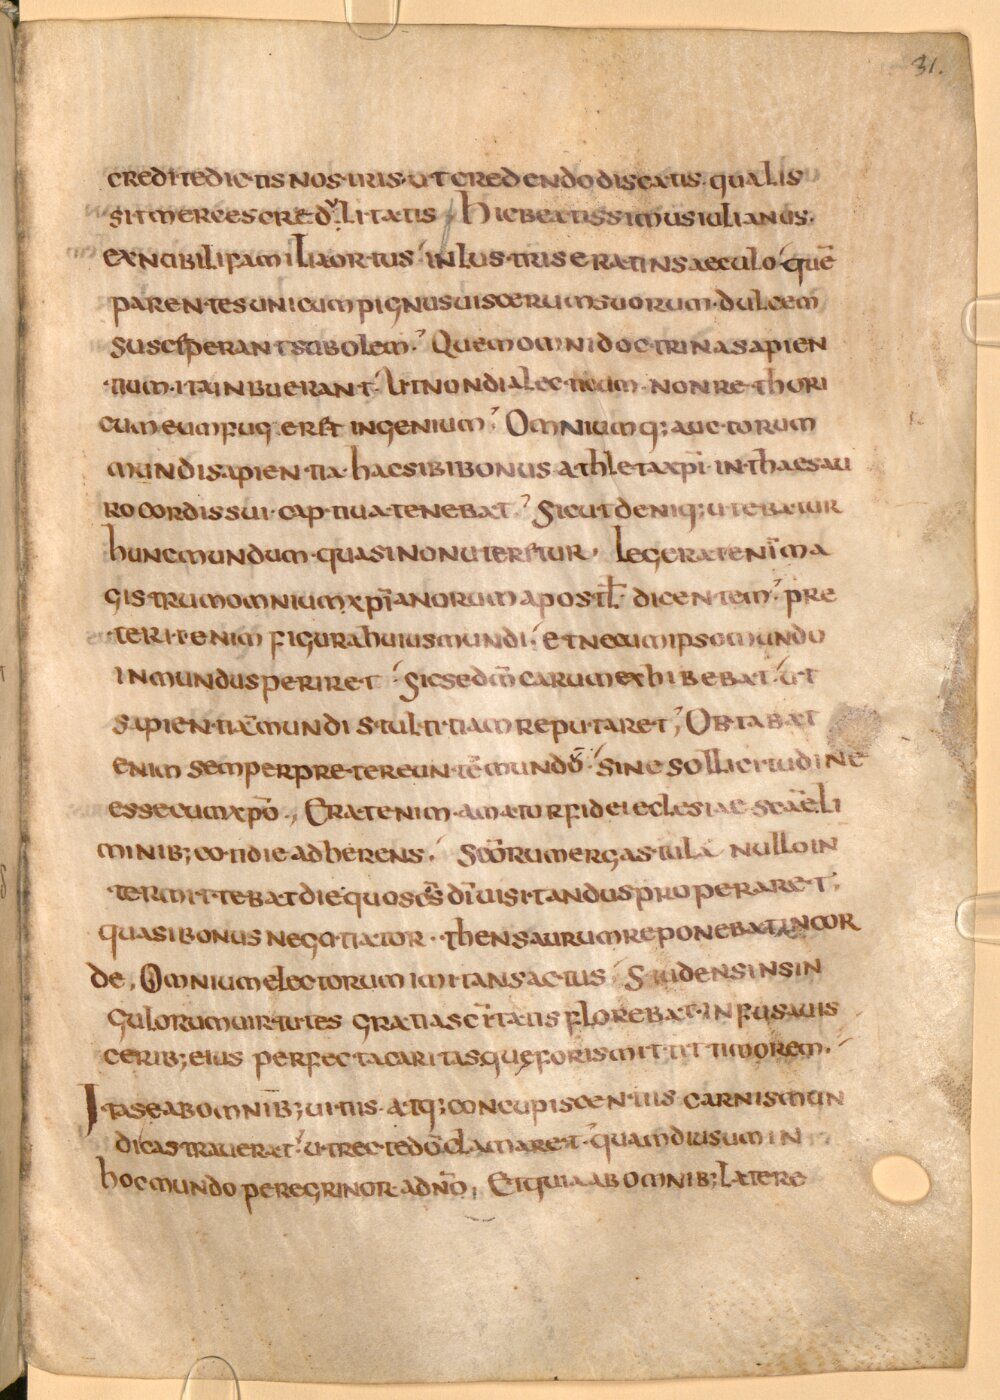 31.
credite dictis nostris ut credendo discatis qualis
sit merces credulitatis Hic beatissimus iulianus.
ex nobili familia ortus inlustris erat in saeculo quē
parentes unicum pignus uiscerum suorum dulcem
susceperant subolem. Quem omni doctrina sapien
tium ita inbuerant Ut non dialecticum non rethori
cum eum fugeret ingenium. Omniumq; auctorum
mundi sapientia haec sibi bonus athleta xpī in thaesau
ro cordis sui captiua tenebat. Sicut deniq; utebatur
hunc mundum quasi non uteretur. legerat enī ma
gistrum omnium xpīanorum apostl dicentem. pre
terit enim figura huius mundi. et ne cum ipso mundo
inmundus periret Sic se dm̄ carum exhibebat. ut
sapientiā mundi stultitiam reputaret, Obtabat
enim semper pretereuntē mundō sine sollicitudine
esse cum xpō, Erat enim amator fidei eclesiae scāe li
minib; cotidie adherens. Scōrum ergastula nullo in
termittebat die quos cs̄ dī uisitandus properaret.
quasi bonus negotiator. thensaurum reponebat in cor
de, Omnium electorum imitans actus Studens in sin
gulorum uirtutes gratia scītatis florebat infusa uis
cerib; eius perfecta caritas quę foris mittit timorem.
Ita se ab omnib; uitiis atq; concupiscentiis carnis mun
dicastrauerat. ut recte dō clamaret quamdiu sum in
hoc mundo peregrinor a dnō, Et quia ab omnib; latere